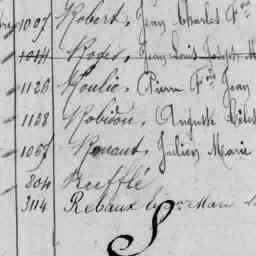 1007 Robert, Jean Charles Fois
1014 Roger, Jean Louis Joseph M
1126 Roulic, Pierre Fois Jean
1138 Robidou, Auguste Céles
1067 Rouaut, Julien Marie
804 Rufflé
3114 Rebaux
S